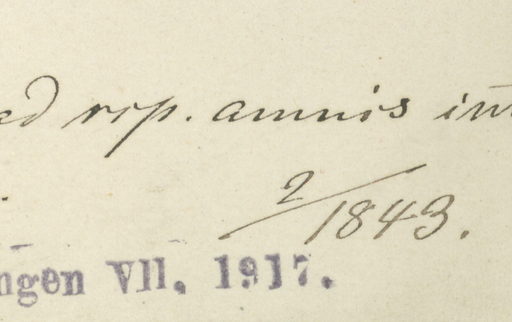 ad rip. amnis int
2/1843.
ngen VII. 1917.